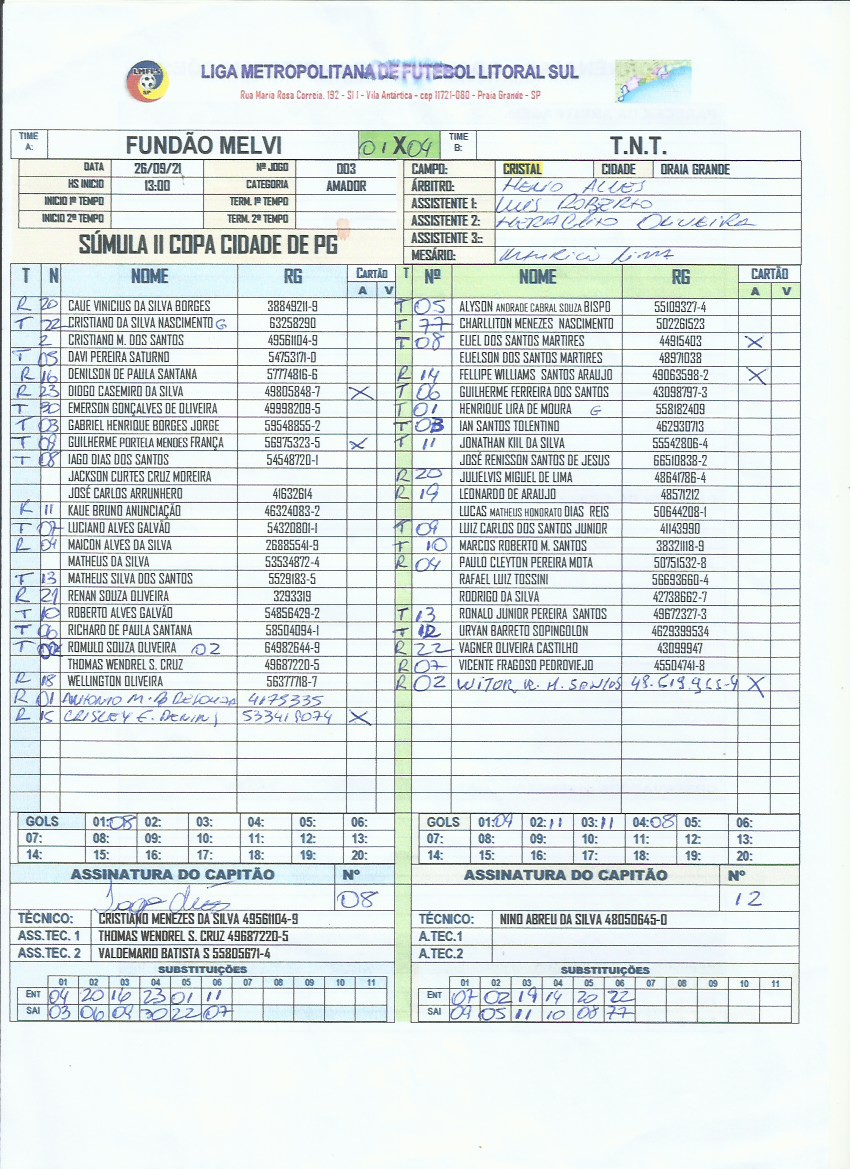 LIGA METROPOLITANA DE FUTEBOL LITORAL SUL
Rua Maria Rosa Correia, 192 - Sl 1 - Vila Antártica - cep 11721-080 - Praia Grande - SP
TIME A: FUNDÃO MELVI 01 X 04 TIME B: T.N.T.
DATA 26/09/21 Nº JOGO 003 CAMPO: CRISTAL CIDADE ORAIA GRANDE
HS INICIO 13:00 CATEGORIA AMADOR ÁRBITRO: HELIO ALVES
INICIO 1º TEMPO TERM. 1º TEMPO ASSISTENTE 1: LUIS ROBERTO
INICIO 2º TEMPO TERM. 2º TEMPO ASSISTENTE 2: HERACLITO OLIVEIRA
SÚMULA II COPA CIDADE DE PG ASSISTENTE 3:
MESÁRIO: MAURICIO LIMA
T N NOME RG CARTÃO A V T Nº NOME RG CARTÃO A V
R 20 CAUE VINICIUS DA SILVA BORGES 38849211-9 T 05 ALYSON ANDRADE CABRAL SOUZA BISPO 55109327-4
T 22 CRISTIANO DA SILVA NASCIMENTO G 63258290 T 77 CHARLLITON MENEZES NASCIMENTO 502261523
2 CRISTIANO M. DOS SANTOS 49561104-9 T 08 ELIEL DOS SANTOS MARTIRES 44915403 X
T 05 DAVI PEREIRA SATURNO 54753171-0 EUELSON DOS SANTOS MARTIRES 48971038
R 16 DENILSON DE PAULA SANTANA 57774816-6 R 14 FELLIPE WILLIAMS SANTOS ARAUJO 49063598-2 X
R 23 DIOGO CASEMIRO DA SILVA 49805848-7 X T 06 GUILHERME FERREIRA DOS SANTOS 43098797-3
T 30 EMERSON GONÇALVES DE OLIVEIRA 49998209-5 T 01 HENRIQUE LIRA DE MOURA G 558182409
T 03 GABRIEL HENRIQUE BORGES JORGE 59548855-2 T 03 IAN SANTOS TOLENTINO 462930713
T 09 GUILHERME PORTELA MENDES FRANÇA 56975323-5 X T 11 JONATHAN KIIL DA SILVA 55542806-4
T 08 IAGO DIAS DOS SANTOS 54548720-1 JOSÉ RENISSON SANTOS DE JESUS 66510838-2
JACKSON CURTES CRUZ MOREIRA R 20 JULIELVIS MIGUEL DE LIMA 48641786-4
JOSÉ CARLOS ARRUNHERO 41632614 R 19 LEONARDO DE ARAUJO 48571212
R 11 KAUE BRUNO ANUNCIAÇÃO 46324083-2 LUCAS MATHEUS HONORATO DIAS REIS 50644208-1
T 07 LUCIANO ALVES GALVÃO 54320801-1 T 09 LUIZ CARLOS DOS SANTOS JUNIOR 41143990
R 04 MAICON ALVES DA SILVA 26885541-9 T 10 MARCOS ROBERTO M. SANTOS 38321118-9
MATHEUS DA SILVA 53534872-4 R 04 PAULO CLEYTON PEREIRA MOTA 50751532-8
T 13 MATHEUS SILVA DOS SANTOS 5529183-5 RAFAEL LUIZ TOSSINI 56693660-4
R 21 RENAN SOUZA OLIVEIRA 3293319 RODRIGO DA SILVA 42738662-7
T 10 ROBERTO ALVES GALVÃO 54856429-2 T 13 RONALD JUNIOR PEREIRA SANTOS 49672327-3
T 06 RICHARD DE PAULA SANTANA 58504094-1 T 12 URYAN BARRETO SOPINGOLON 4629399534
T 02 ROMULO SOUZA OLIVEIRA 02 64982644-9 R 22 VAGNER OLIVEIRA CASTILHO 43099947
THOMAS WENDREL S. CRUZ 49687220-5 R 07 VICENTE FRAGOSO PEDROVIEJO 45504741-8
R 18 WELLINGTON OLIVEIRA 56377718-7 R 02 WITOR M. SANTOS 48.619.965-4 X
R 01 ANTONIO M. 4175335
R 15 CRISLEY E. 533418074 X
GOLS 01: 08 02: 03: 04: 05: 06: GOLS 01: 09 02: 11 03: 11 04: 08 05: 06:
07: 08: 09: 10: 11: 12: 13: 07: 08: 09: 10: 11: 12: 13:
14: 15: 16: 17: 18: 19: 20: 14: 15: 16: 17: 18: 19: 20:
ASSINATURA DO CAPITÃO Nº ASSINATURA DO CAPITÃO Nº
Iago Dias 08 12
TÉCNICO: CRISTIANO MENEZES DA SILVA 49561104-9 TÉCNICO: NINO ABREU DA SILVA 48050645-0
ASS.TEC. 1 THOMAS WENDREL S. CRUZ 49687220-5 A.TEC.1
ASS.TEC. 2 VALDEMARIO BATISTA S 55805671-4 A.TEC.2
SUBSTITUIÇÕES SUBSTITUIÇÕES
01 02 03 04 05 06 07 08 09 10 11 01 02 03 04 05 06 07 08 09 10 11
ENT 04 20 16 23 01 11 ENT 07 02 19 14 20 22
SAI 03 06 09 30 22 07 SAI 09 05 11 10 08 77